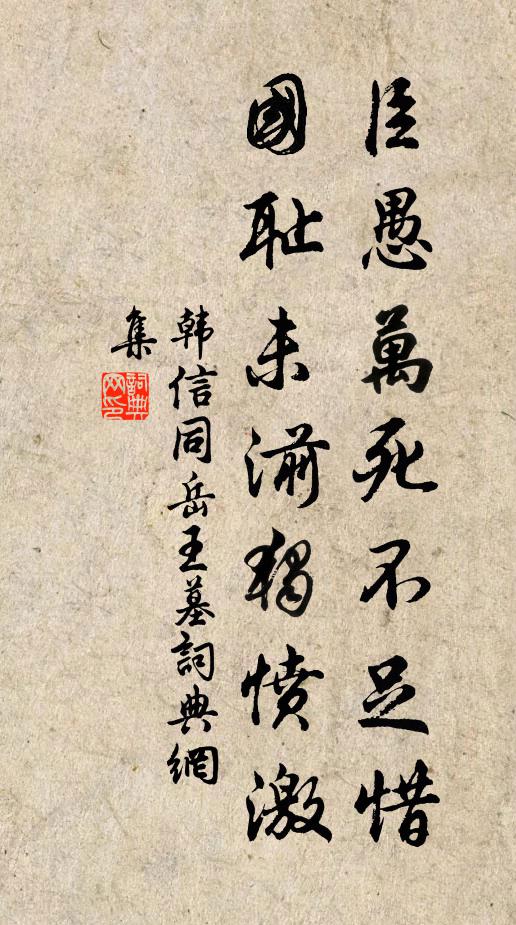 臣愚萬死不足惜
國耻未湔獨憤激
韩信同岳王墓詞典網
集
詞典
网印